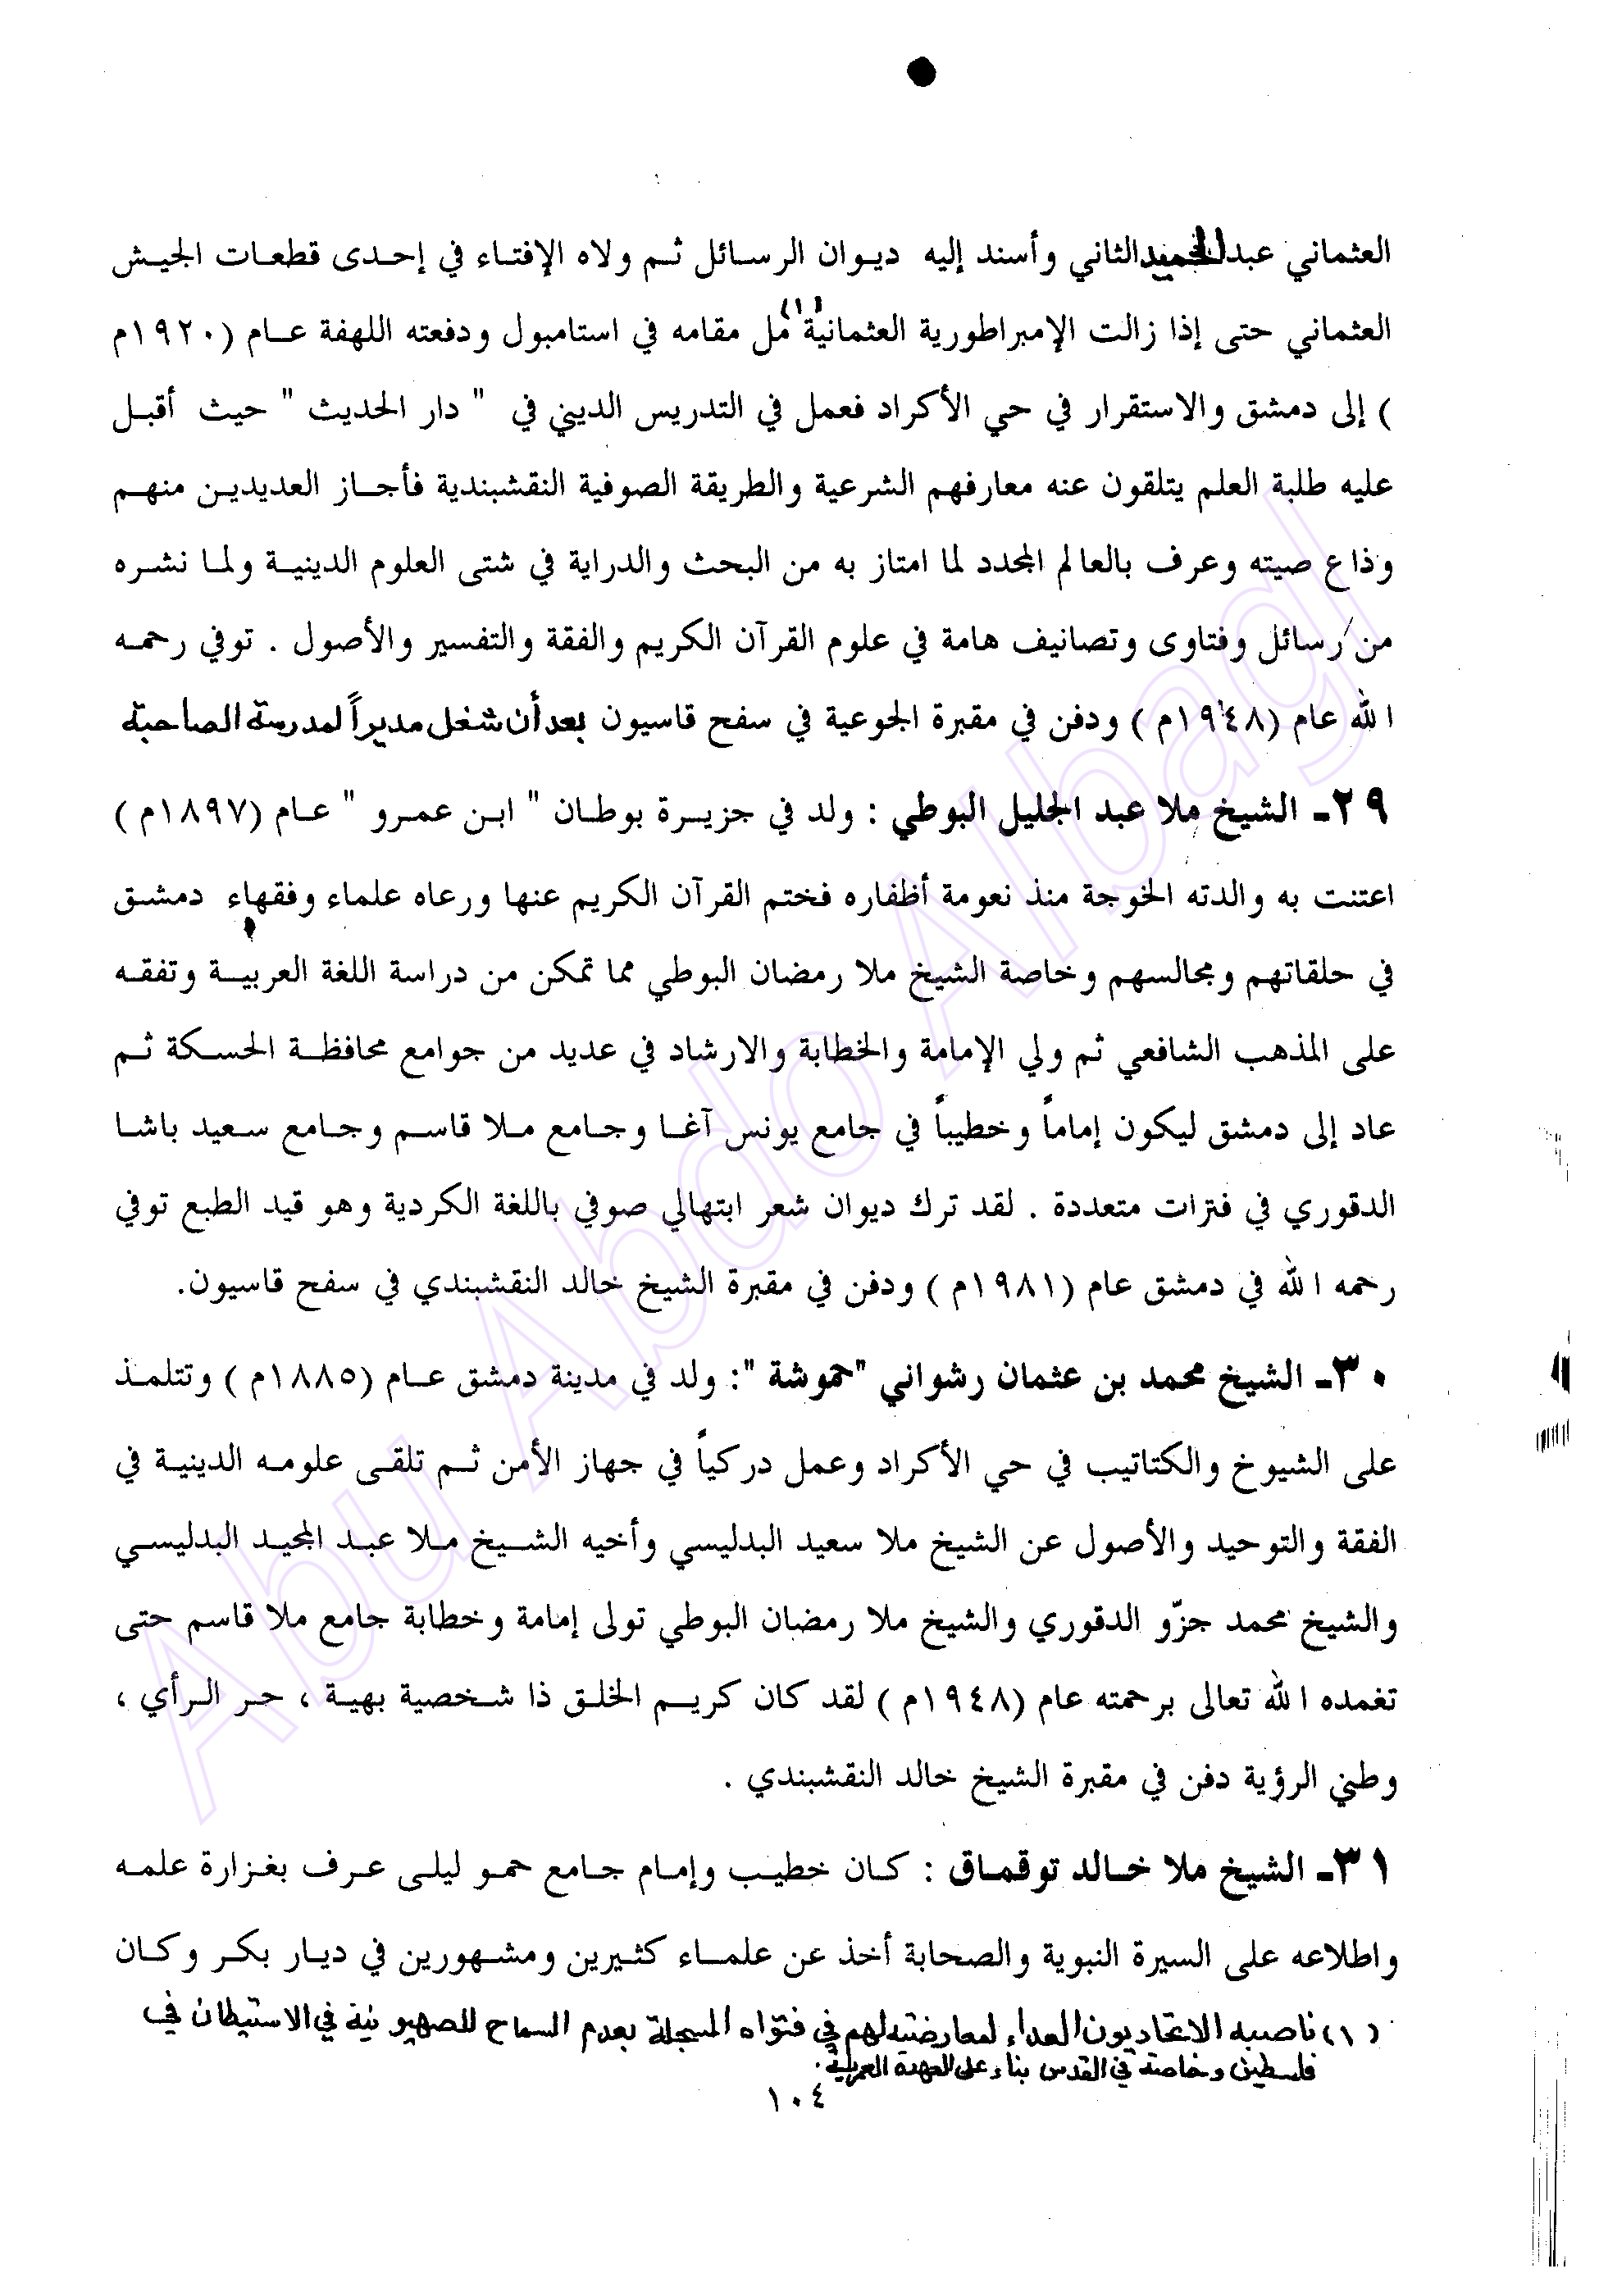 العثماني عبد الحميد الثاني وأسند إليه ديوان الرسائل ثم ولاه الإفتاء في إحدى قطعات الجيش
العثماني حتى إذا زالت الإمبراطورية العثمانية (١) مل مقامه في استامبول ودفعته اللهفة عام (١٩٢٠م
) إلى دمشق والاستقرار في حي الأكراد فعمل في التدريس الديني في " دار الحديث " حيث أقبل
عليه طلبة العلم يتلقون عنه معارفهم الشرعية والطريقة الصوفية النقشبندية فأجاز العديدين منهم
وذاع صيته وعرف بالعالم المجدد لما امتاز به من البحث والدراية في شتى العلوم الدينية ولما نشره
من رسائل وفتاوى وتصانيف هامة في علوم القرآن الكريم والفقة والتفسير والأصول . توفي رحمه
الله عام (١٩٤٨م ) ودفن في مقبرة الجوعية في سفح قاسيون بعد أن شغل مديراً لمدرسة الصاحبة
٢٩- الشيخ ملا عبد الجليل البوطي : ولد في جزيرة بوطان " ابن عمرو " عام (١٨٩٧م )
اعتنت به والدته الخوجة منذ نعومة أظفاره فختم القرآن الكريم عنها ورعاه علماء وفقهاء دمشق
في حلقاتهم ومجالسهم وخاصة الشيخ ملا رمضان البوطي مما تمكن من دراسة اللغة العربية وتفقه
على المذهب الشافعي ثم ولي الإمامة والخطابة والارشاد في عديد من جوامع محافظة الحسكة ثم
عاد إلى دمشق ليكون إماماً وخطيباً في جامع يونس آغا وجامع ملا قاسم وجامع سعيد باشا
الدقوري في فترات متعددة . لقد ترك ديوان شعر ابتهالي صوفي باللغة الكردية وهو قيد الطبع توفي
رحمه الله في دمشق عام (١٩٨١م ) ودفن في مقبرة الشيخ خالد النقشبندي في سفح قاسيون.
٣٠- الشيخ محمد بن عثمان رشواني "حموشة ": ولد في مدينة دمشق عام (١٨٨٥م ) وتتلمذ
على الشيوخ والكتاتيب في حي الأكراد وعمل دركياً في جهاز الأمن ثم تلقى علومه الدينية في
الفقة والتوحيد والأصول عن الشيخ ملا سعيد البدليسي وأخيه الشيخ ملا عبد المجيد البدليسي
والشيخ محمد جزّو الدقوري والشيخ ملا رمضان البوطي تولى إمامة وخطابة جامع ملا قاسم حتى
تغمده الله تعالى برحمته عام (١٩٤٨م ) لقد كان كريم الخلق ذا شخصية بهية ، حر الرأي ،
وطني الرؤية دفن في مقبرة الشيخ خالد النقشبندي .
٣١- الشيخ ملا خالد توقماق : كان خطيب وإمام جامع حمو ليلى عرف بغزارة علمه
واطلاعه على السيرة النبوية والصحابة أخذ عن علماء كثيرين ومشهورين في ديار بكر وكان
(١) ناصبه الاتحاديون العداء لمعارضته لهم في فتواه المسجلة بعدم السماح للصهيونية في الاستيطان في
فلسطين وخاصة في القدس بناء على العهدة العمرية.
١٠٤
Abu Abdo Albagl